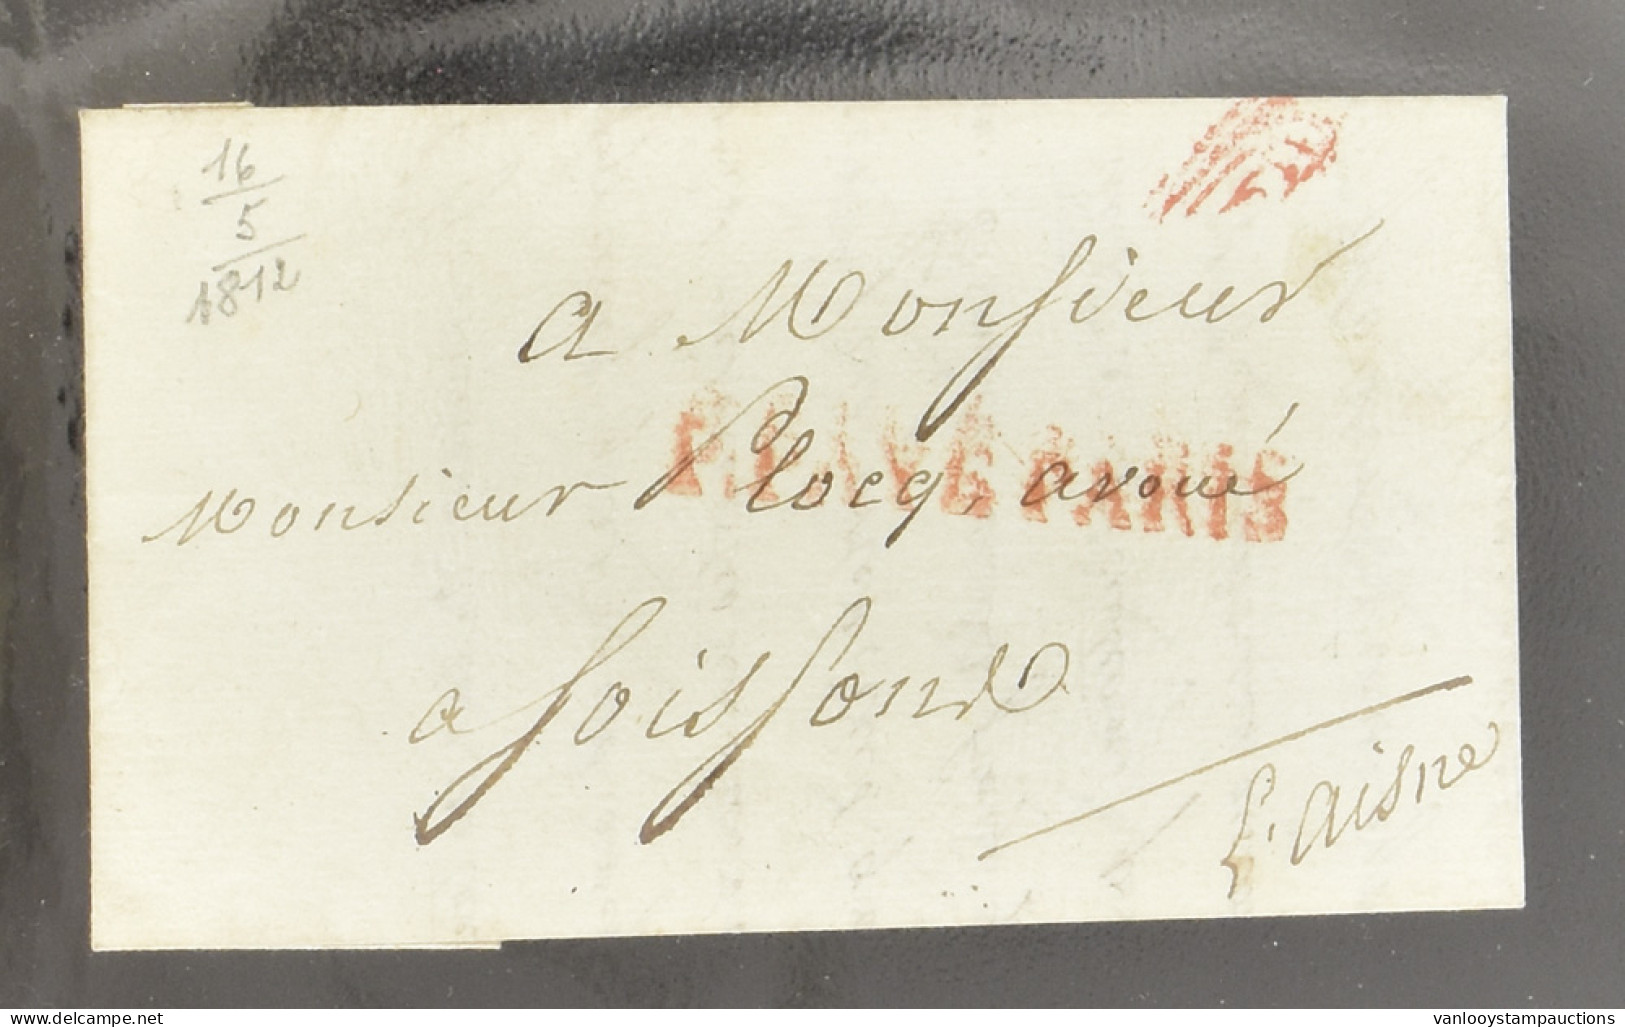 16
5
1812
a Monsieur
P.PAYÉ PARIS
Monsieur Plocq, avoué
a Soissons
L'aisne
www.delcampe.net
vanlooystampauctions